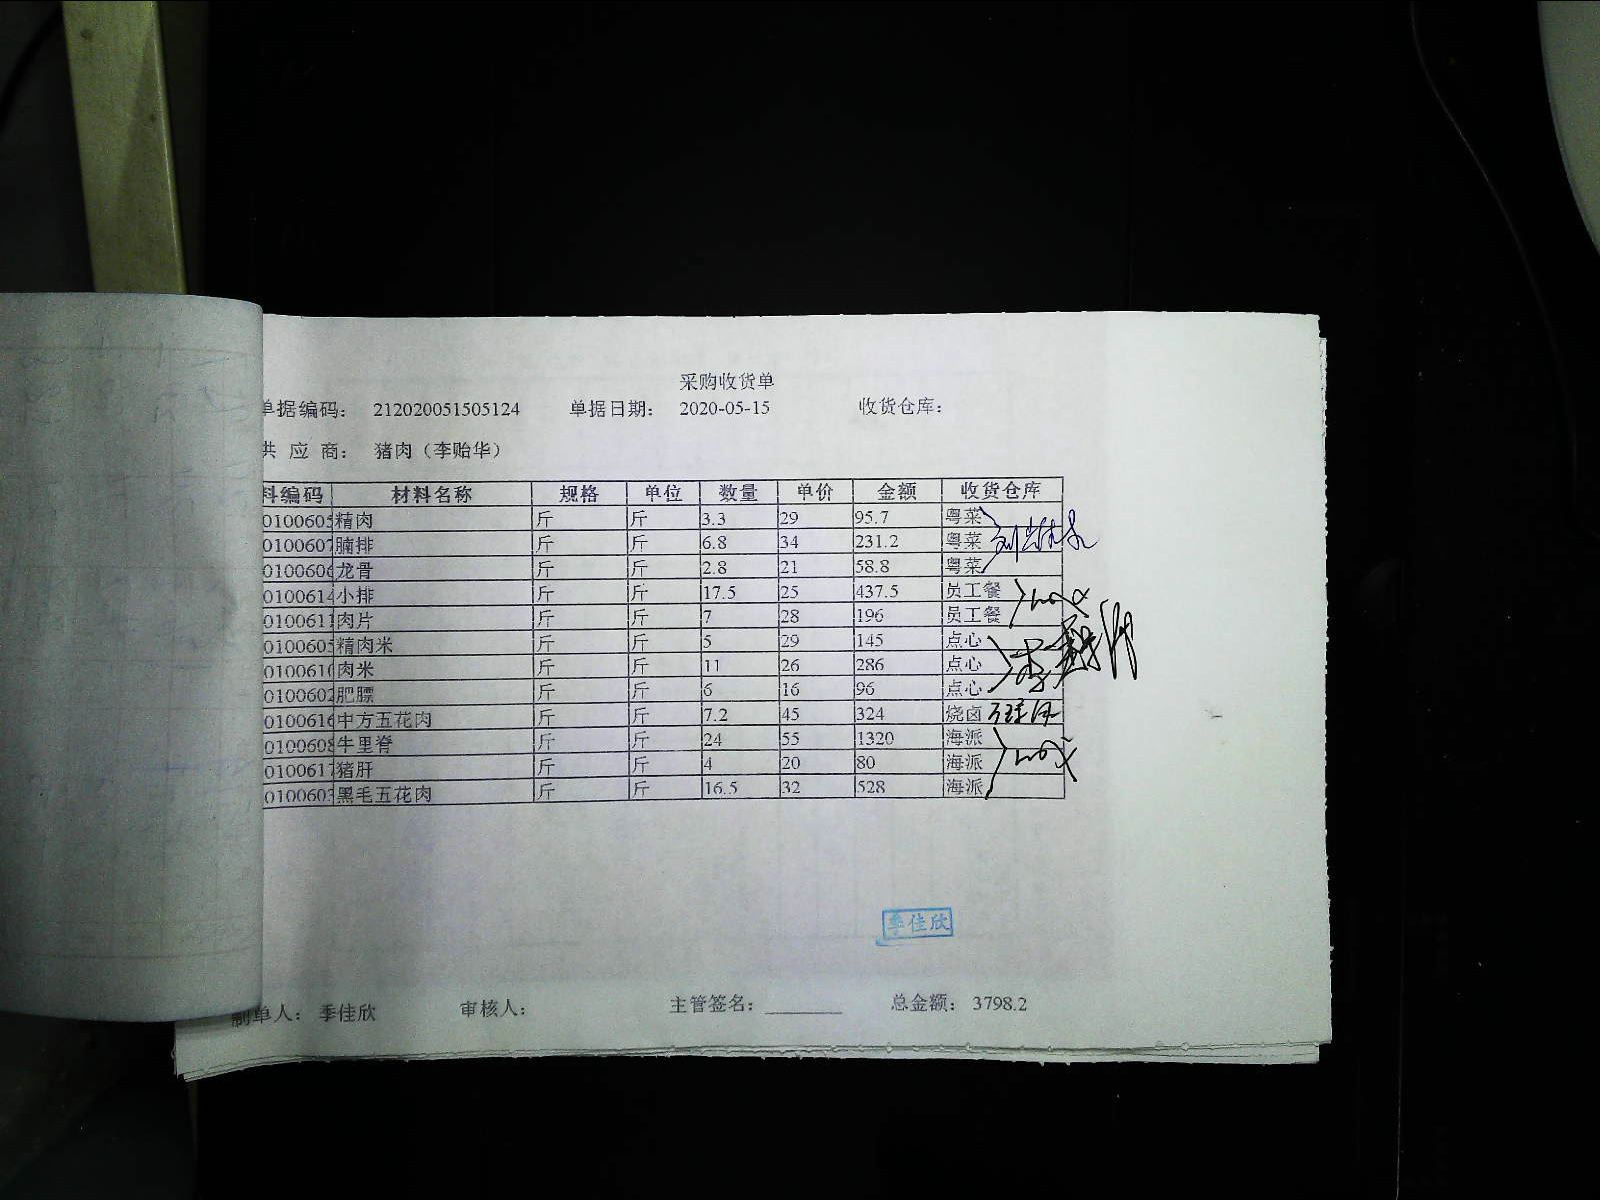 采购收货单
单据编码： 212020051505124 单据日期： 2020-05-15 收货仓库：
供 应 商： 猪肉（李贻华）
料编码 材料名称 规格 单位 数量 单价 金额 收货仓库
0100605 精肉 斤 斤 3.3 29 95.7 粤菜
0100607 腩排 斤 斤 6.8 34 231.2 粤菜
0100606 龙骨 斤 斤 2.8 21 58.8 粤菜
0100614 小排 斤 斤 17.5 25 437.5 员工餐
0100611 肉片 斤 斤 7 28 196 员工餐
0100605 精肉米 斤 斤 5 29 145 点心
0100610 肉米 斤 斤 11 26 286 点心
0100602 肥膘 斤 斤 6 16 96 点心
0100616 中方五花肉 斤 斤 7.2 45 324 烧卤
0100608 牛里脊 斤 斤 24 55 1320 海派
0100617 猪肝 斤 斤 4 20 80 海派
0100603 黑毛五花肉 斤 斤 16.5 32 528 海派
季佳欣
制单人： 季佳欣 审核人： 主管签名： 总金额： 3798.2